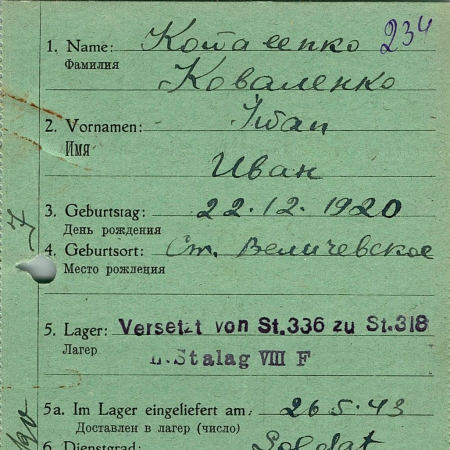 234
1. Name: Коваленко
Фамилия
Коваленко
2. Vornamen: Иван
Имя
Иван
3. Geburtstag: 22.12.1920
День рождения
4. Geburtsort: Ст. Величевское
Место рождения
5. Lager: Versetzt von St.336 zu St.318
Лагер
Stalag VIII F
5a. Im Lager eingeliefert am: 26.5.43
Доставлен в лагер (число)
6. Dienstgrad: Soldat